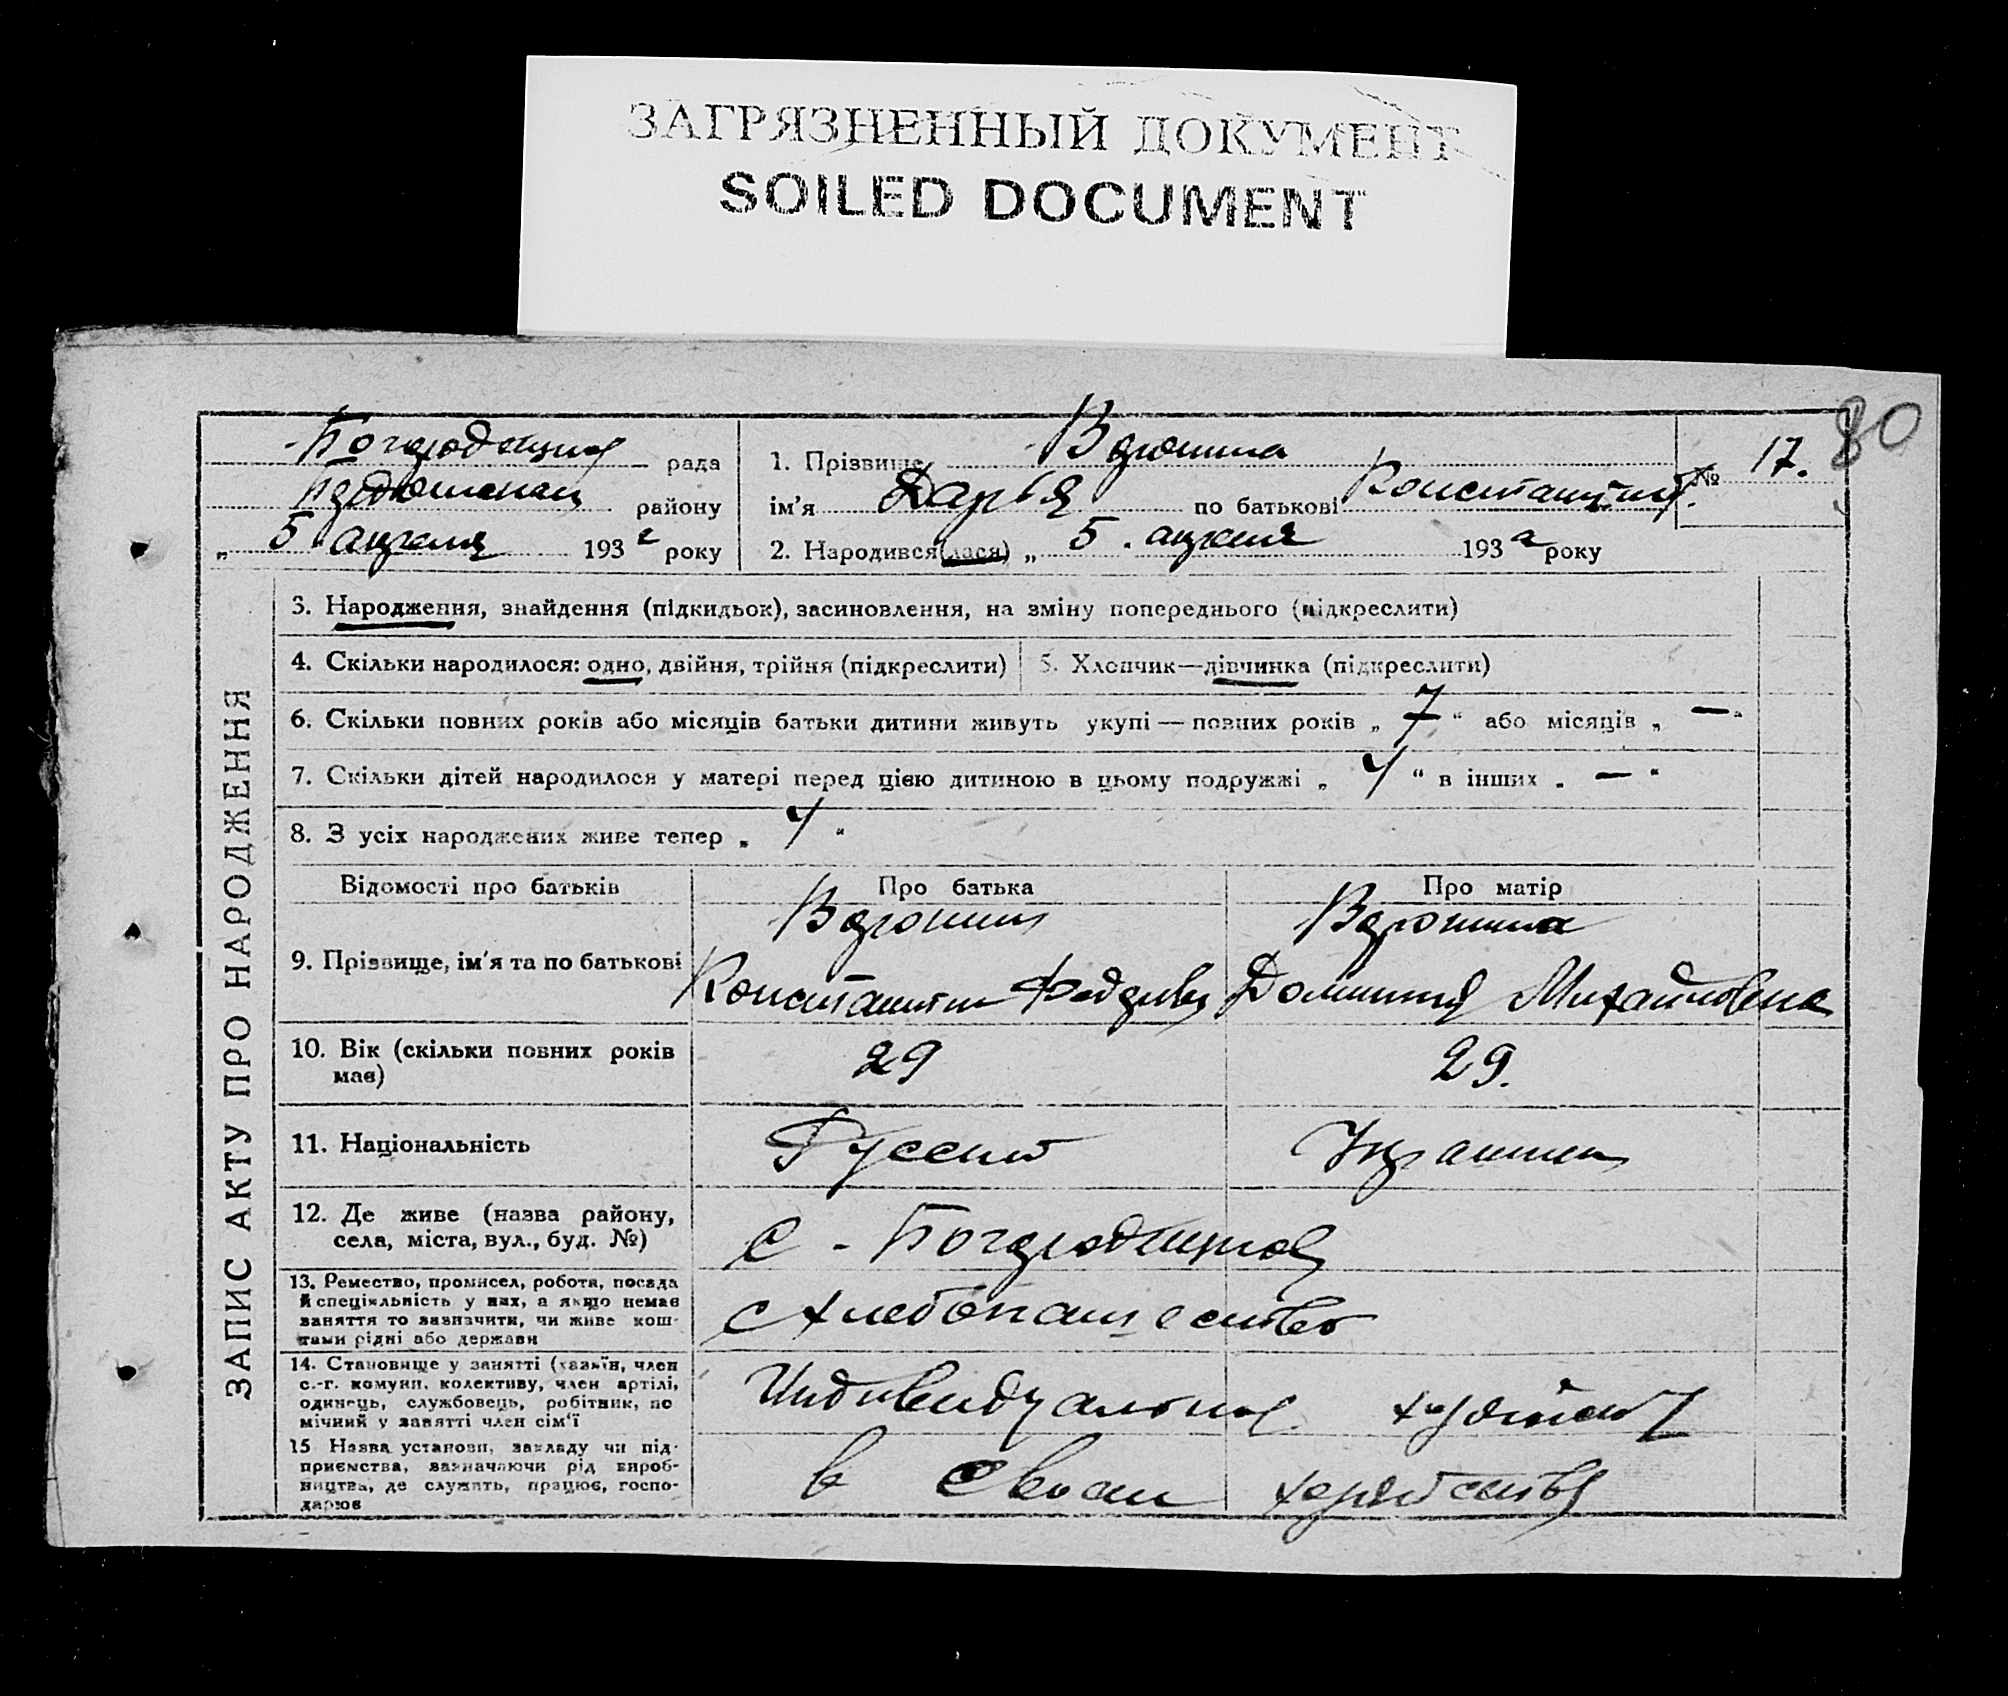 ЗАГРЯЗНЕННЫЙ ДОКУМЕНТ
SOILED DOCUMENT
80
ЗАПИС АКТУ ПРО НАРОДЖЕННЯ
рада
району
„ 5 апреля 193 2 року
1. Прізвище
№ 17.
ім'я Дарья по батькові Константин.
2. Народився(лася) „ 5. апреля 193 2 року
3. Народження, знайдення (підкидьок), засиновлення, на зміну попереднього (підкреслити)
4. Скільки народилося: одно, двійня, трійня (підкреслити)
5. Хлопчик—дівчинка (підкреслити)
6. Скільки повних років або місяців батьки дитини живуть укупі — повних років „ 7 “ або місяців „ — “
7. Скільки дітей народилося у матері перед цією дитиною в цьому подружжі „ 4 “ в інших „ — “
8. З усіх народжених живе тепер „ 4 “
Відомості про батьків
Про батька
Про матір
9. Прізвище, ім'я та по батькові
Константин
Михайловна
10. Вік (скільки повних років
має)
29
29.
11. Національність
Русский
12. Де живе (назва району,
села, міста, вул., буд. №)
с.
13. Ремество, промисел, робота, посада
й спеціяльність у них, а якщо немає
заняття то зазначити, чи живе кош-
тами рідні або держави
хлебопашество
14. Становище у занятті (хазяїн, член
с.-г. комуни, колективу, член артілі,
одинець, службовець, робітник, по
мічний у занятті член сім'ї
15 Назва установи, закладу чи під-
приємства, зазначаючи рід вироб-
ництва, де служить, працює, госпо-
дарює
в своем